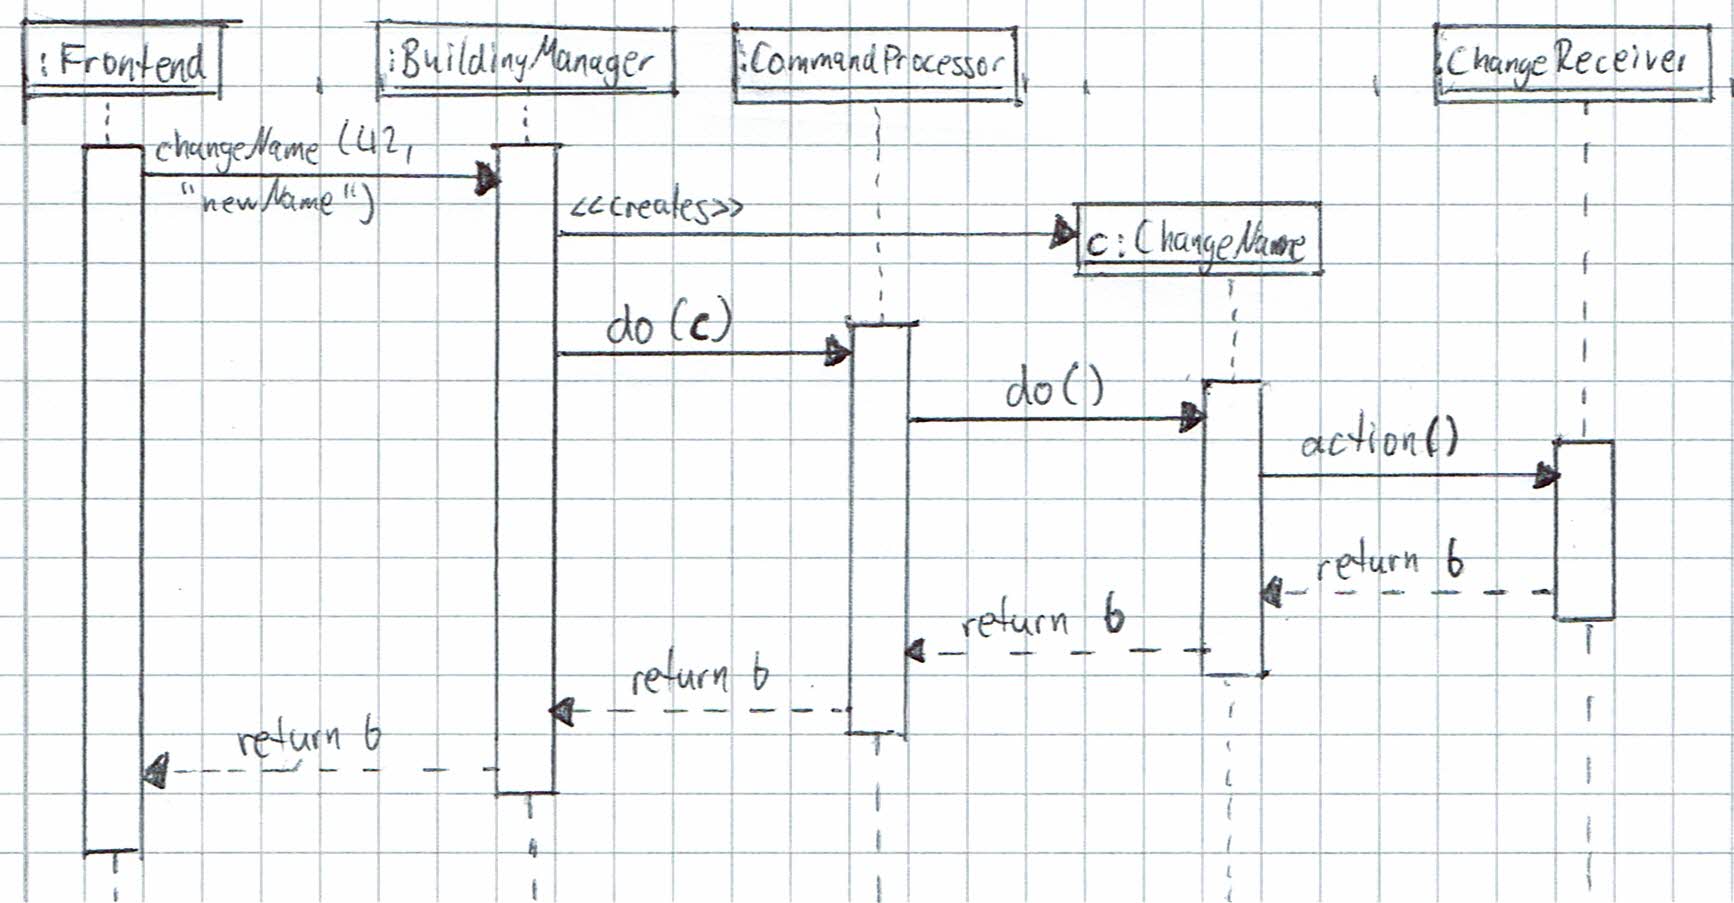 :Frontend
:BuildingManager
:CommandProcessor
:ChangeReceiver
changeName (42,
"newName")
<<creates>>
c:ChangeName
do(c)
do()
action()
return b
return b
return b
return b